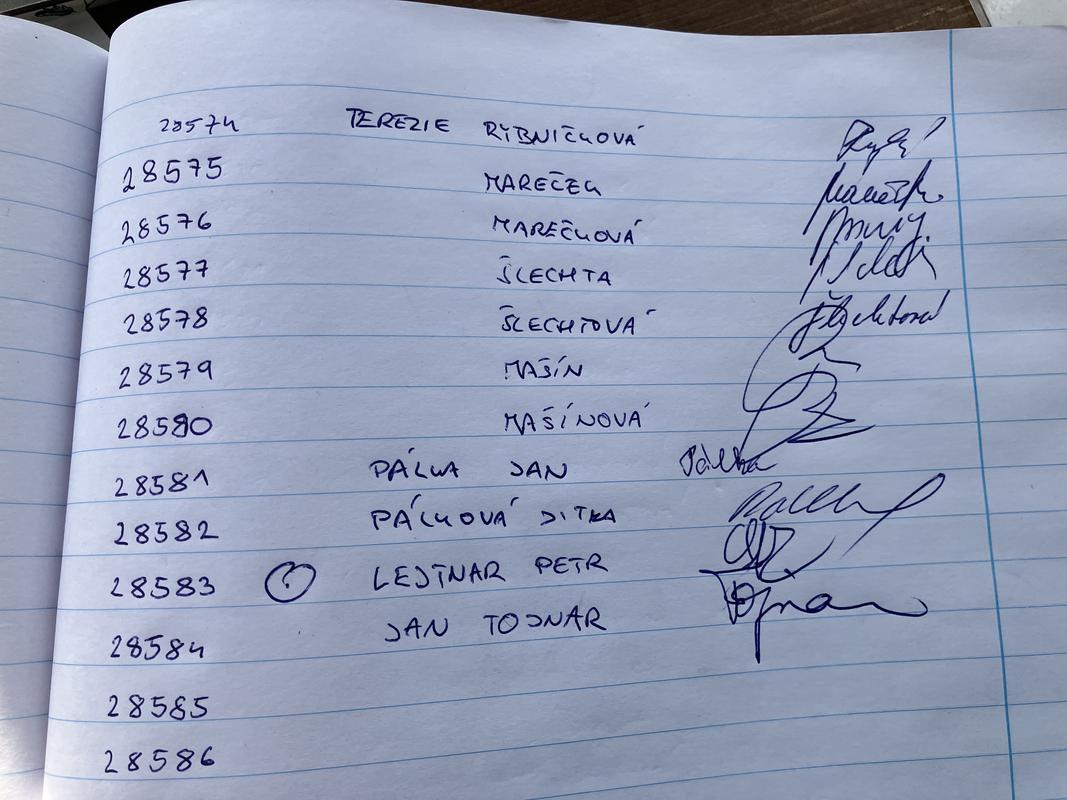 28574 TEREZIE RYBNIČKOVÁ
28575 MAREČEK
28576 MAREČKOVÁ
28577 ŠLECHTA
28578 ŠLECHTOVÁ Šlechtová
28579 MAŠÍN
28580 MAŠÍNOVÁ
28581 PÁLKA JAN Pálka
28582 PÁLKOVÁ JITKA
28583 LEJTNAR PETR
28584 JAN TOJNAR Tojnar
28585
28586